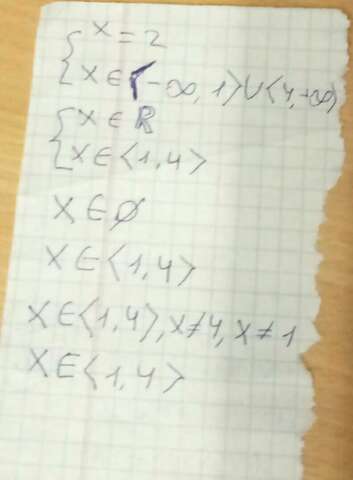 { x = 2
{ x ∈ (-∞, 1⟩ ∪ ⟨4, +∞)
{ x ∈ ℝ
{ x ∈ ⟨1, 4⟩
x ∈ ∅
x ∈ ⟨1, 4⟩
x ∈ ⟨1, 4⟩, x ≠ 4, x ≠ 1
x ∈ ⟨1, 4⟩